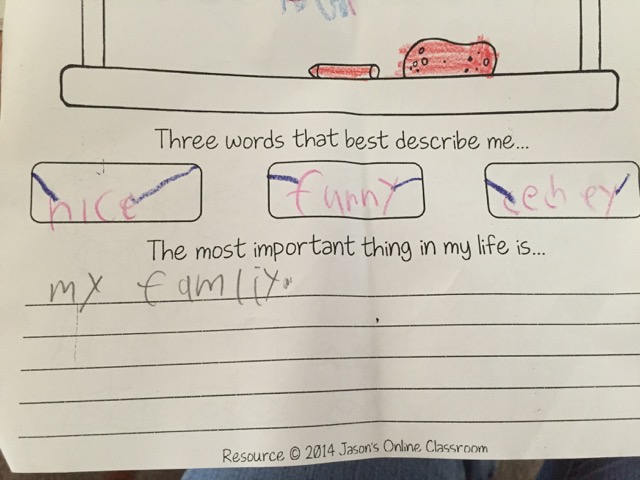 Three words that best describe me...
nice funny
The most important thing in my life is...
my famliy.
Resource © 2014 Jason's Online Classroom